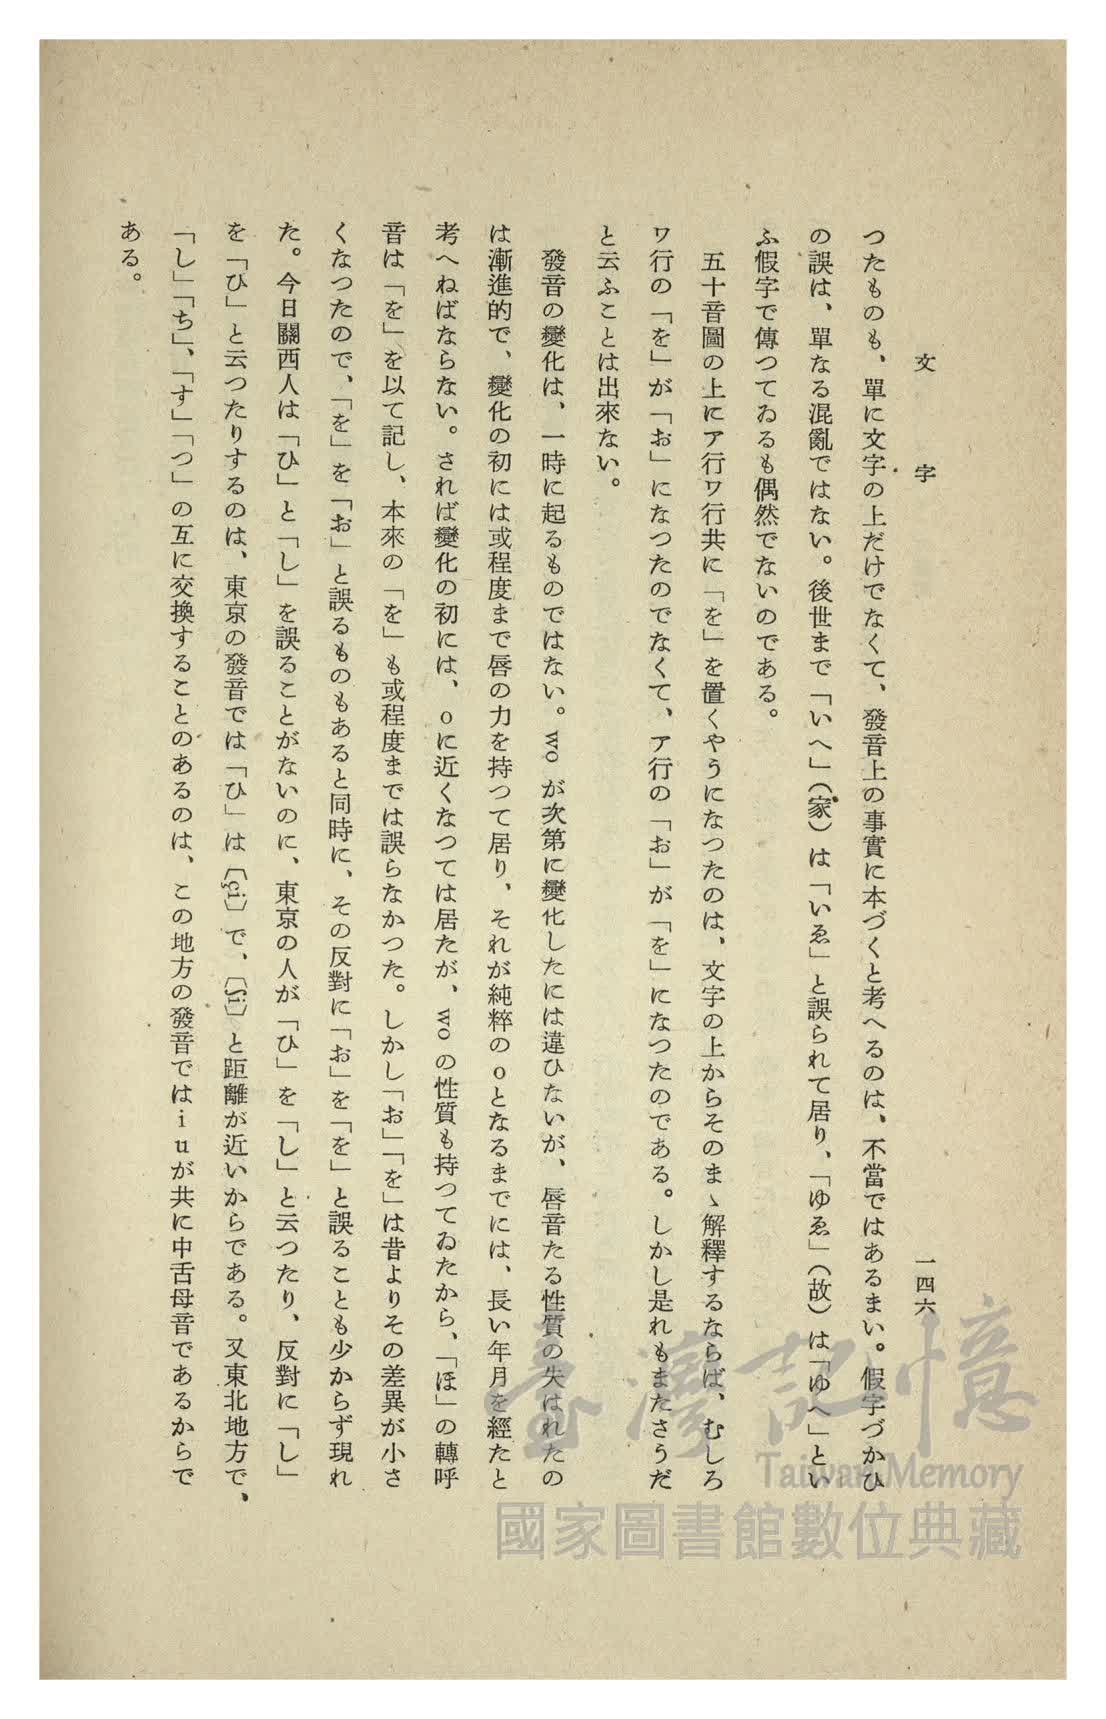 文字
一四六
つたものも、單に文字の上だけでなくて、發音上の事實に本づくと考へるのは、不當ではあるまい。假字づかひ
の誤は、單なる混亂ではない。後世まで「いへ」（家）は「いゑ」と誤られて居り、「ゆゑ」（故）は「ゆへ」とい
ふ假字で傳つてゐるも偶然でないのである。
五十音圖の上にア行ワ行共に「を」を置くやうになつたのは、文字の上からそのまゝ解釋するならば、むしろ
ワ行の「を」が「お」になつたのでなくて、ア行の「お」が「を」になつたのである。しかし是れもまたさうだ
と云ふことは出來ない。
發音の變化は、一時に起るものではない。wo が次第に變化したには違ひないが、唇音たる性質の失はれたの
は漸進的で、變化の初には或程度まで唇の力を持つて居り、それが純粹のoとなるまでには、長い年月を經たと
考へねばならない。されば變化の初には、oに近くなつては居たが、wo の性質も持つてゐたから、「ほ」の轉呼
音は「を」を以て記し、本來の「を」も或程度までは誤らなかつた。しかし「お」「を」は昔よりその差異が小さ
くなつたので、「を」を「お」と誤るものもあると同時に、その反對に「お」を「を」と誤ることも少からず現れ
た。今日關西人は「ひ」と「し」を誤ることがないのに、東京の人が「ひ」を「し」と云つたり、反對に「し」
を「ひ」と云つたりするのは、東京の發音では「ひ」は〔çi〕で、〔ʃi〕と距離が近いからである。又東北地方で、
「し」「ち」、「す」「つ」の互に交換することのあるのは、この地方の發音ではi uが共に中舌母音であるからで
ある。
臺灣記憶
Taiwan Memory
國家圖書館數位典藏